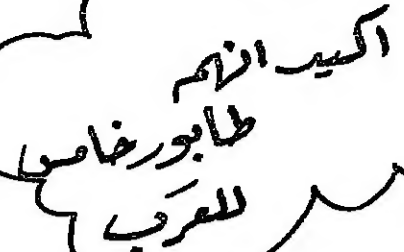 اكيد انهم
طابور خامس
للغرب